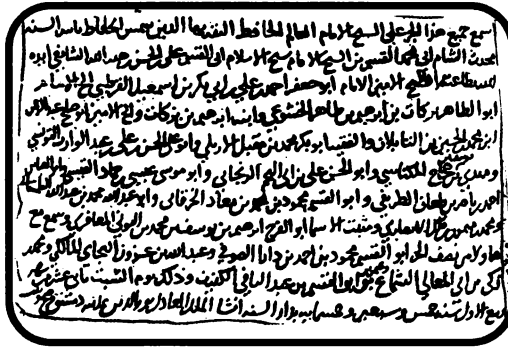 سمع جميع هذا الجزء على الشيخ الامام العالم الحافظ الثقة بها الدين شمس الحفاظ ناصر السنه
محدث الشام ابي محمد القسم بن الشيخ الامام شيخ الاسلام ابي القسم علي بن الحسن بن هبة الله الشافعي ايده
الله بطاعته الشيخ الامين الامام ابو جعفر احمد بن علي بن ابي بكر بن اسمعيل القرطبي
ابو الطاهر بركات بن ابرهيم بن طاهر الخشوعي وابنه ابرهيم بن بركات
ابن محمد والفقيه ابو بكر محمد بن مقبل الاربلي وابو علي الحسن بن علي بن عبد الوارث التونسي
بن حجاج المكناسي وابو الحسن علي بن ابرهيم وابو موسى عيسى بن حماد القيسي
احمد بن ناصر بن طعان الطريفي وابو القسم محمود بن محمد بن معاد الخرقاني وابو عبد الله محمد بن عبد الله
الانصاري ومثبت الاسما ابو الفرج ابرهيم بن يوسف بن محمد بن البوني المعافري وسمع مع
نصف الجزء ابو القسم محمود بن احمد بن دارا الصوفي وعبد الله بن عزوز البجاي المالكي ومحمد
بن ابي المعالي ابو القسم بن عبد الباقي وذلك يوم السبت ثاني عشر شهر
ربيع الاول سنة خمس وسبعين وخمس مايه بدار السنه انشا الملك العادل نور الدين بمدينة دمشق